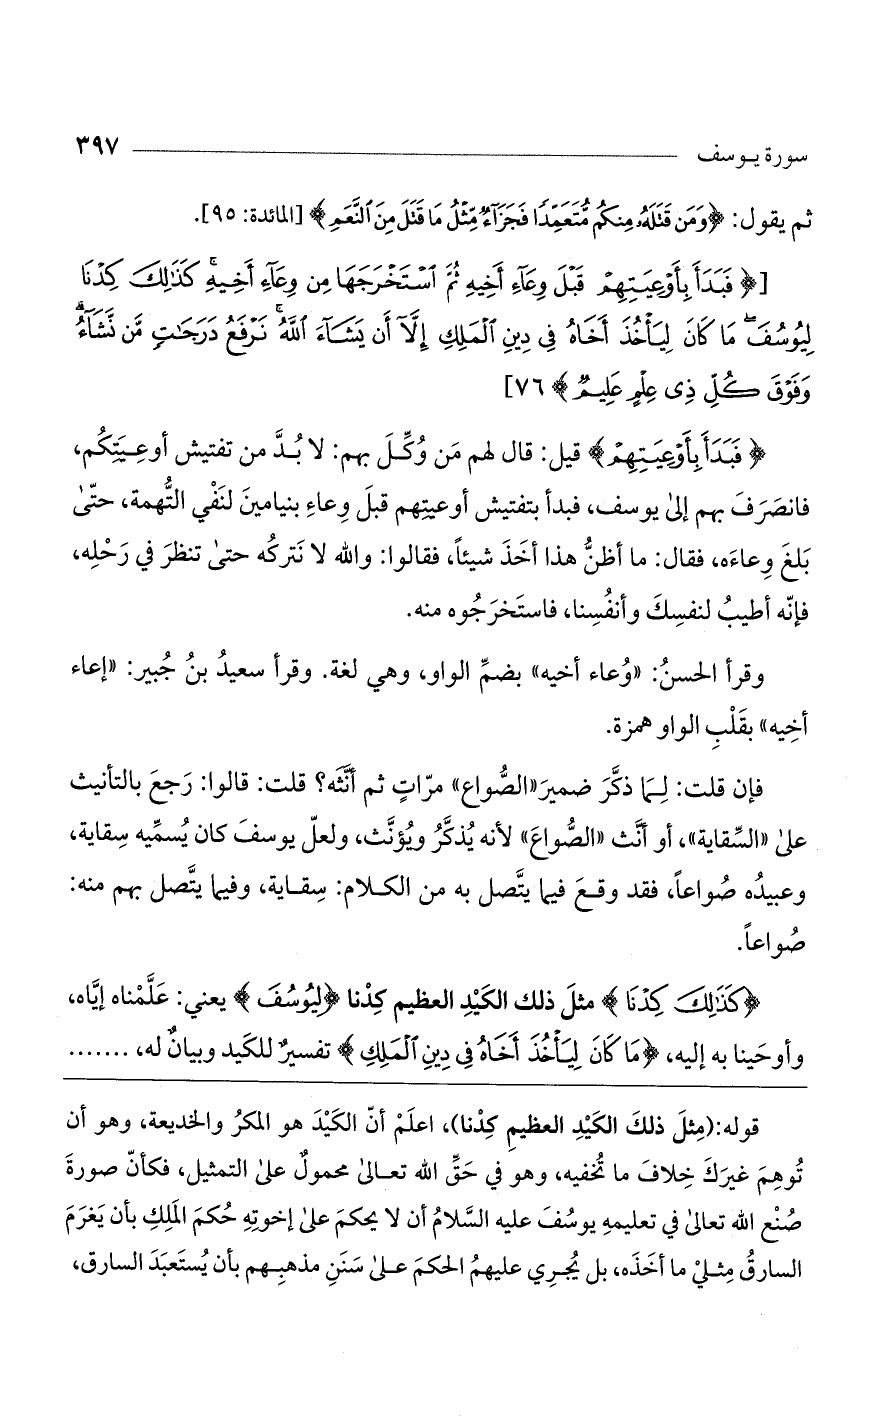 سورة يوسف ٣٩٧
ثم يقول: ﴿وَمَن قَتَلَهُۥ مِنكُم مُّتَعَمِّدًا فَجَزَآءٌ مِّثْلُ مَا قَتَلَ مِنَ ٱلنَّعَمِ﴾ [المائدة: ٩٥].
[﴿فَبَدَأَ بِأَوْعِيَتِهِمْ قَبْلَ وِعَآءِ أَخِيهِ ثُمَّ ٱسْتَخْرَجَهَا مِن وِعَآءِ أَخِيهِ ۚ كَذَٰلِكَ كِدْنَا
لِيُوسُفَ ۖ مَا كَانَ لِيَأْخُذَ أَخَاهُ فِى دِينِ ٱلْمَلِكِ إِلَّآ أَن يَشَآءَ ٱللَّهُ ۚ نَرْفَعُ دَرَجَٰتٍ مَّن نَّشَآءُ ۗ
وَفَوْقَ كُلِّ ذِى عِلْمٍ عَلِيمٌ﴾ ٧٦]
﴿فَبَدَأَ بِأَوْعِيَتِهِمْ﴾ قيل: قال لهم مَن وُكِّلَ بهم: لا بُدَّ من تفتيش أوعِيَتِكُم،
فانصَرَفَ بهم إلىٰ يوسف، فبدأ بتفتيش أوعيتِهم قبلَ وِعاءِ بنيامينَ لنَفْي التُّهمة، حتّىٰ
بَلغَ وِعاءَه، فقال: ما أظنُّ هذا أخَذَ شيئاً، فقالوا: والله لا نَتركُه حتىٰ تنظرَ في رَحْلِه،
فإنّه أطيبُ لنفسِكَ وأنفُسِنا، فاستَخرَجُوه منه.
وقرأ الحسنُ: «وُعاء أخيه» بضمِّ الواو، وهي لغة. وقرأ سعيدُ بنُ جُبير: «إعاء
أخِيه» بقَلْبِ الواو همزة.
فإن قلت: لِـمَا ذكَّرَ ضميرَ «الصُّواع» مرّاتٍ ثم أنَّثَه؟ قلت: قالوا: رَجعَ بالتأنيث
علىٰ «السِّقاية»، أو أنَّث «الصُّواعَ» لأنه يُذكَّرُ ويُؤنَّث، ولعلّ يوسفَ كان يُسمِّيه سِقاية،
وعبيدُه صُواعاً، فقد وقعَ فيما يتَّصل به من الكلام: سِقاية، وفيما يتَّصل بهم منه:
صُواعاً.
﴿كَذَٰلِكَ كِدْنَا﴾ مثلَ ذلك الكَيْدِ العظيم كِدْنا ﴿لِيُوسُفَ﴾ يعني: عَلَّمْناه إيَّاه،
وأوحَينا به إليه، ﴿مَا كَانَ لِيَأْخُذَ أَخَاهُ فِى دِينِ ٱلْمَلِكِ﴾ تفسيرٌ للكَيد وبيانٌ له، .......
قوله: (مِثلَ ذلكَ الكَيْدِ العظيمِ كِدْنا)، اعلَمْ أنّ الكَيْدَ هو المكرُ والخديعة، وهو أن
تُوهِمَ غيرَكَ خِلافَ ما تُخفيه، وهو في حَقِّ الله تعالىٰ محمولٌ علىٰ التمثيل، فكأنّ صورةَ
صُنْع الله تعالىٰ في تعليمِهِ يوسُفَ عليه السَّلامُ أن لا يحكمَ علىٰ إخوتِهِ حُكمَ الملِكِ بأن يَغرَمَ
السارقُ مِثليْ ما أخَذَه، بل يُجرِي عليهمُ الحكمَ علىٰ سَنَنِ مذهبِهم بأن يُستَعبَدَ السارق،